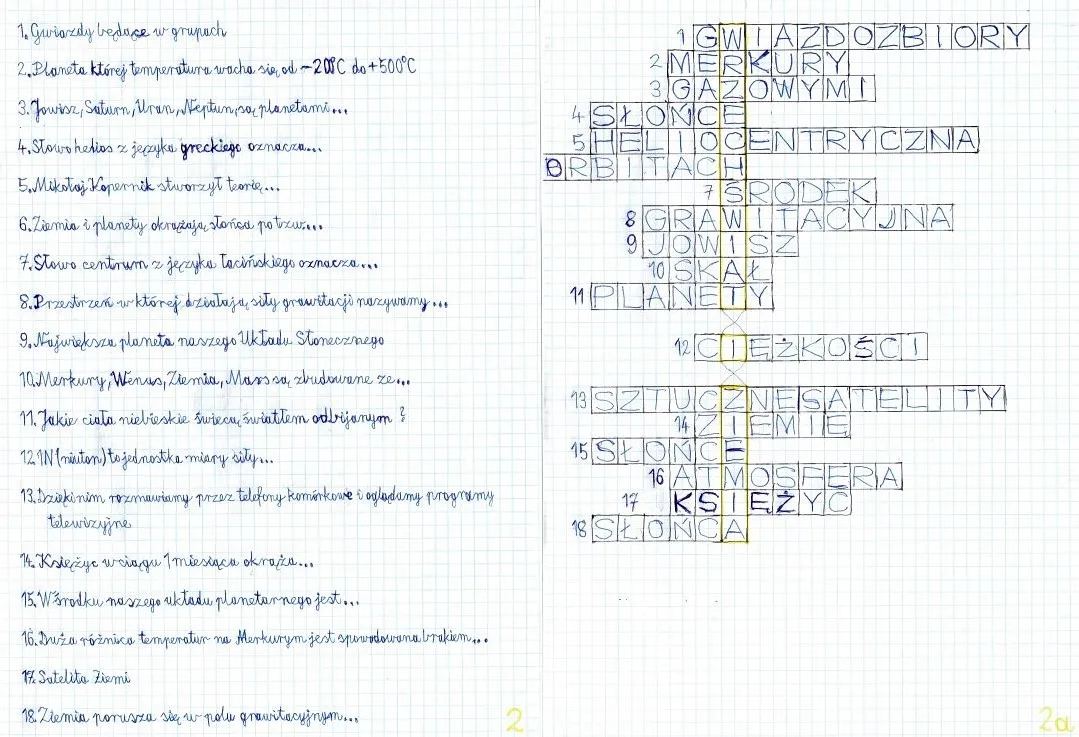 1. Gwiazdy będące w grupach
2. Planeta której temperatura wacha się od -200°C do +500°C
3. Jowisz, Saturn, Uran, Neptun, są planetami...
4. Słowo helios z języka greckiego oznacza...
5. Mikołaj Kopernik stworzył teorię...
6. Ziemia i planety okrążają słońca po tzw....
7. Słowo centrum z języka łacińskiego oznacza...
8. Przestrzeń w której działają siły grawitacji nazywamy...
9. Największa planeta naszego Układu Słonecznego
10. Merkury, Wenus, Ziemia, Mars są zbudowane ze...
11. Jakie ciała niebieskie świecą światłem odbijanym?
12. 1N (niuton) to jednostka miary siły...
13. Dzięki nim rozmawiamy przez telefony komórkowe i oglądamy programy
telewizyjne
14. Księżyc w ciągu 1 miesiąca okrąża...
15. W środku naszego układu planetarnego jest...
16. Duża różnica temperatur na Merkurym jest spowodowana brakiem...
17. Satelita Ziemi
18. Ziemia porusza się w polu grawitacyjnym...
2
1 GWIAZDOZBIORY
2 MERKURY
3 GAZOWYMI
4 SŁOŃCE
5 HELIOCENTRYCZNA
ORBITACH
7 ŚRODEK
8 GRAWITACYJNA
9 JOWISZ
10 SKAŁ
11 PLANETY
12 CIĘŻKOŚCI
13 SZTUCZNESATELITY
14 ZIEMIĘ
15 SŁOŃCE
16 ATMOSFERA
17 KSIĘŻYC
18 SŁOŃCA
2a